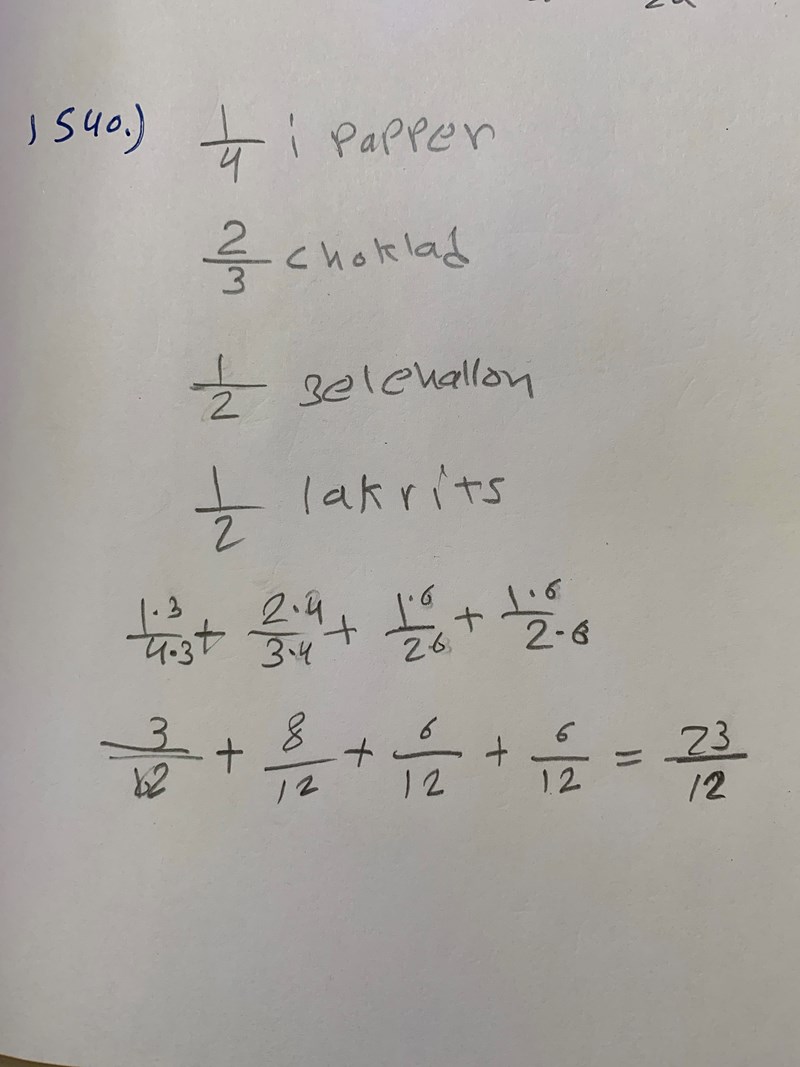 2a
1540.) 1/4 i papper
2/3 choklad
1/2 gelehallon
1/2 lakrits
1·3/4·3 + 2·4/3·4 + 1·6/2·6 + 1·6/2·6
3/12 + 8/12 + 6/12 + 6/12 = 23/12